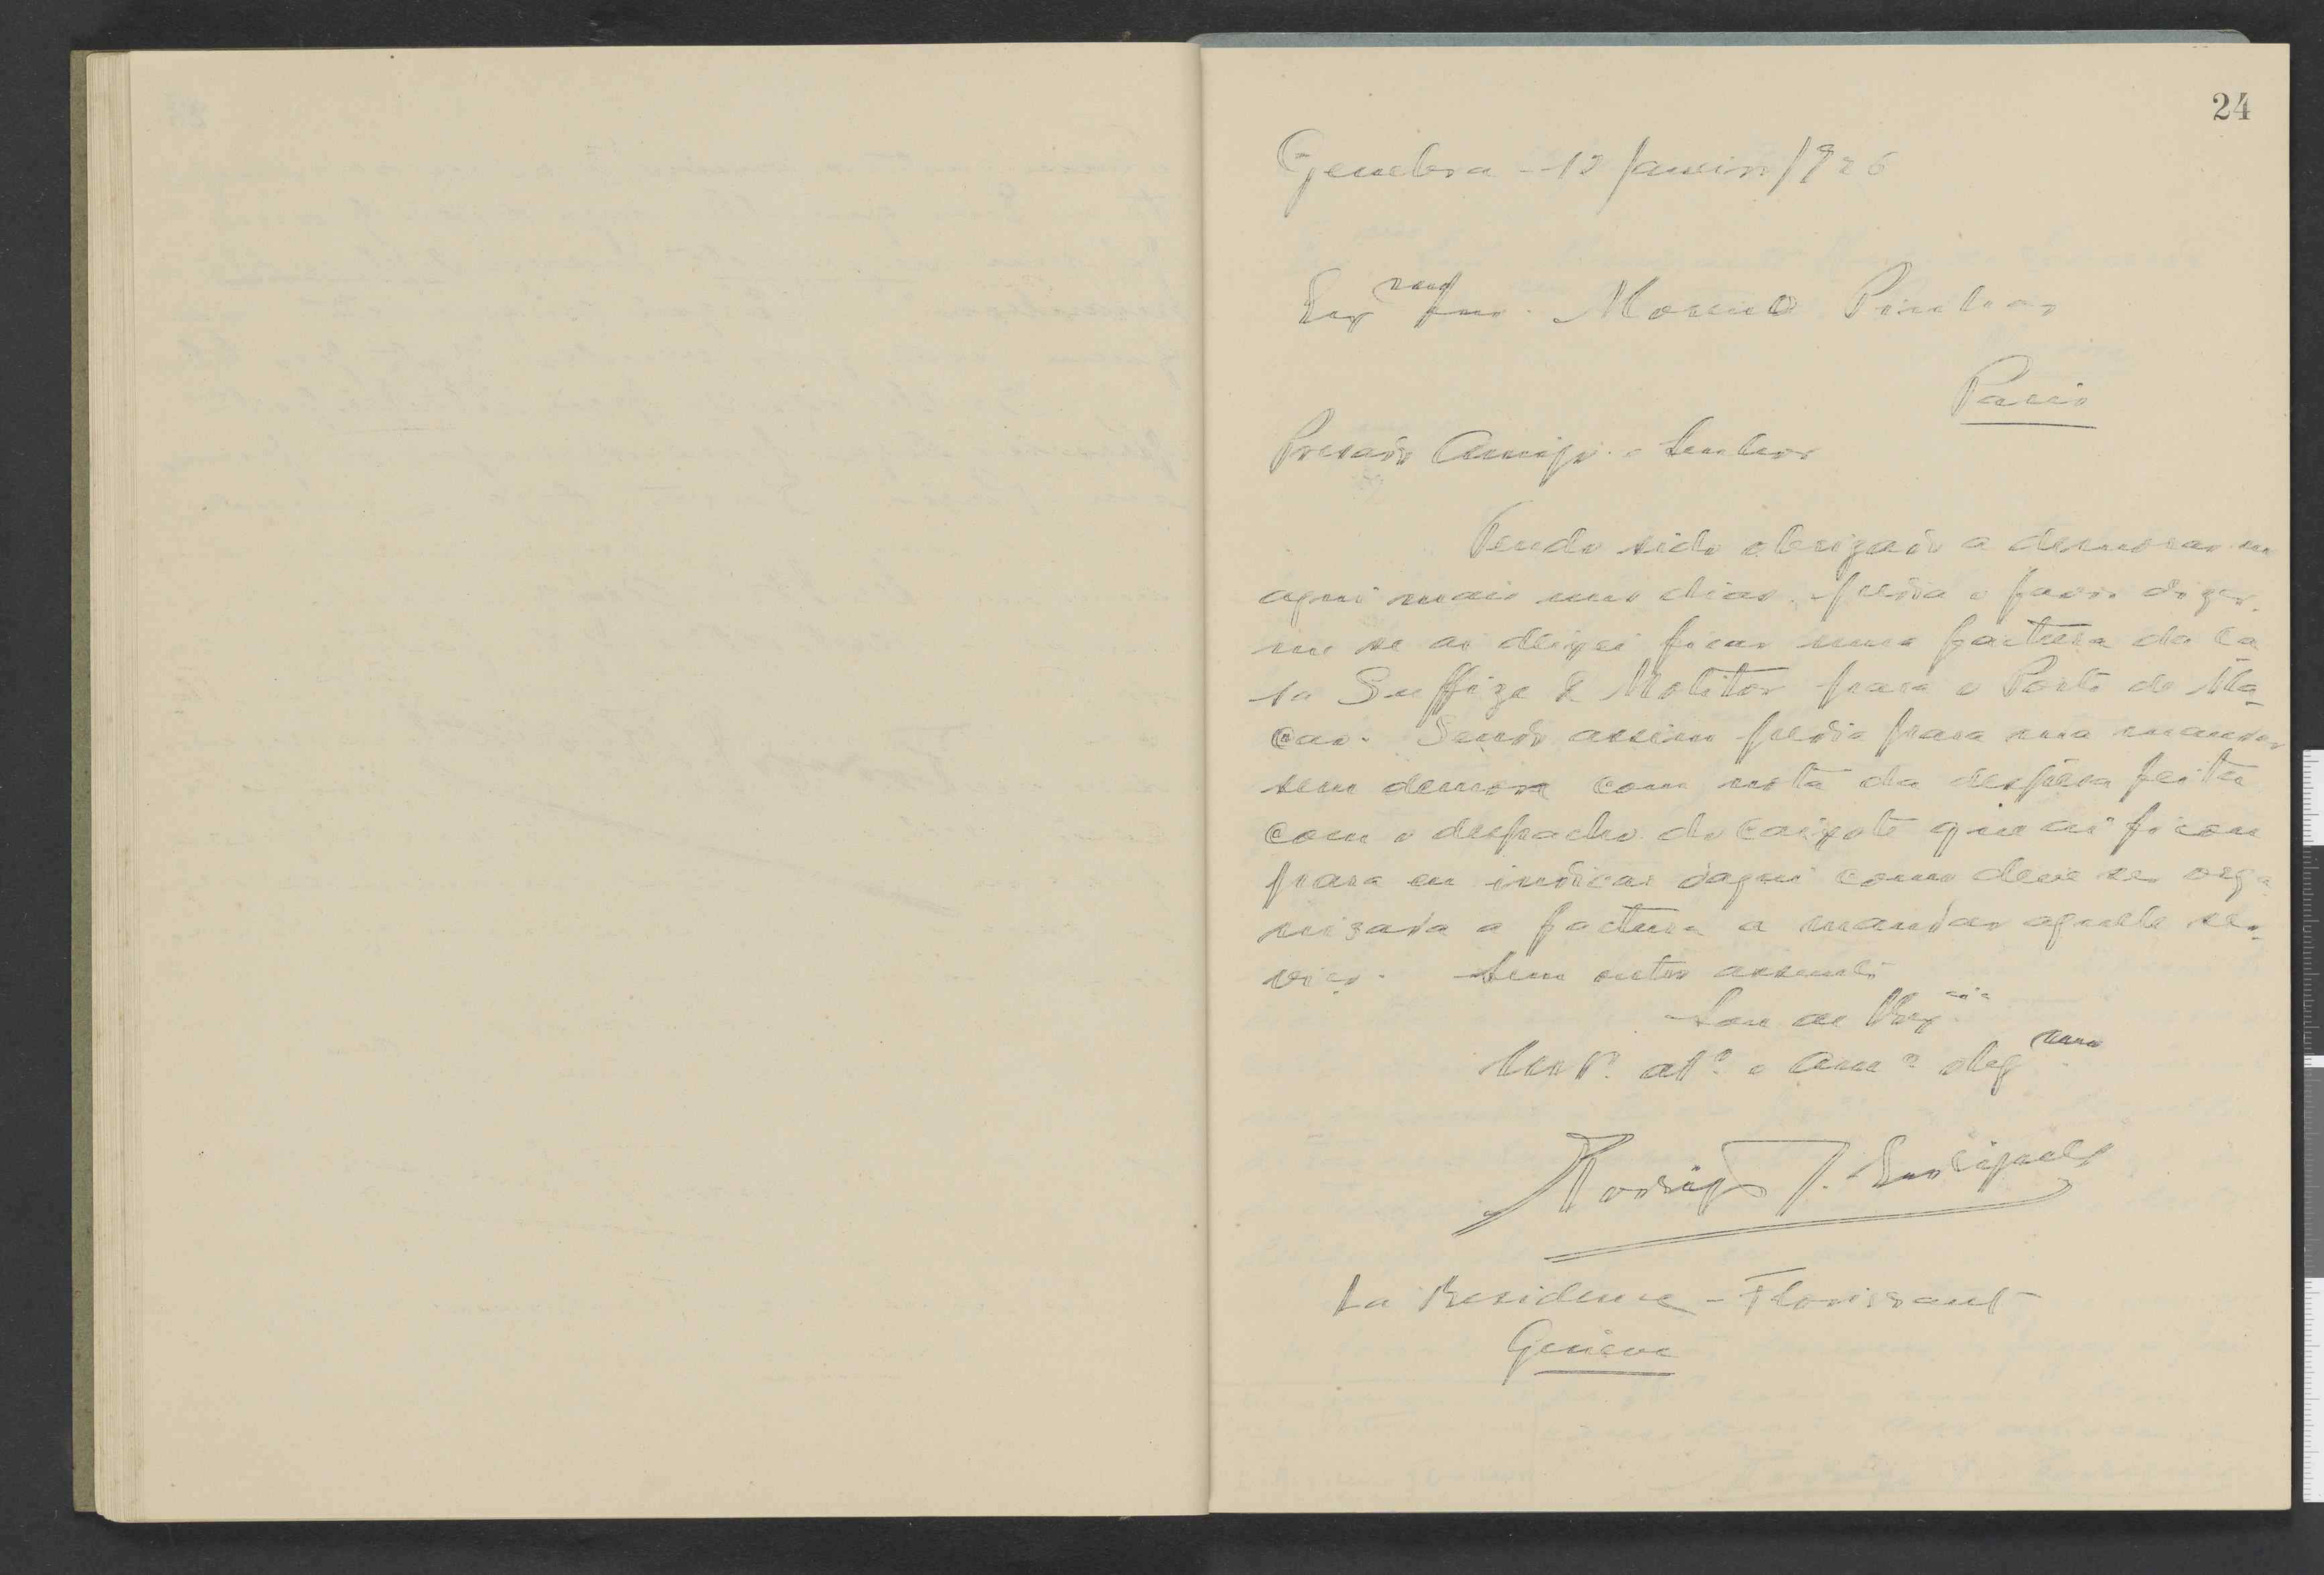 24
Genebra - 12 Janeiro/926
Exmo Snr. Moreno Pinheiro
Paris
Presado Amigo e Senhor
Tendo sido obrigado a demorar me
aqui mais uns dias, pedia o favor dizer
me se ai deixei ficar uma factura da ca
sa Suffize & Molitor para o Porto de Ma_
cau. Sendo assim pedia para ma mandar
sem demora com nota da despesa feita
com o despacho do caixote que ai ficou
para eu indicar daqui como deve ser orga
nizada a factura a mandar aquele ser_
viço. Sem outro assunto
Sou de VExcia
Servr. atº. e Amº obgmo
Rodrigo J.
La Residence - Florissant
Genève